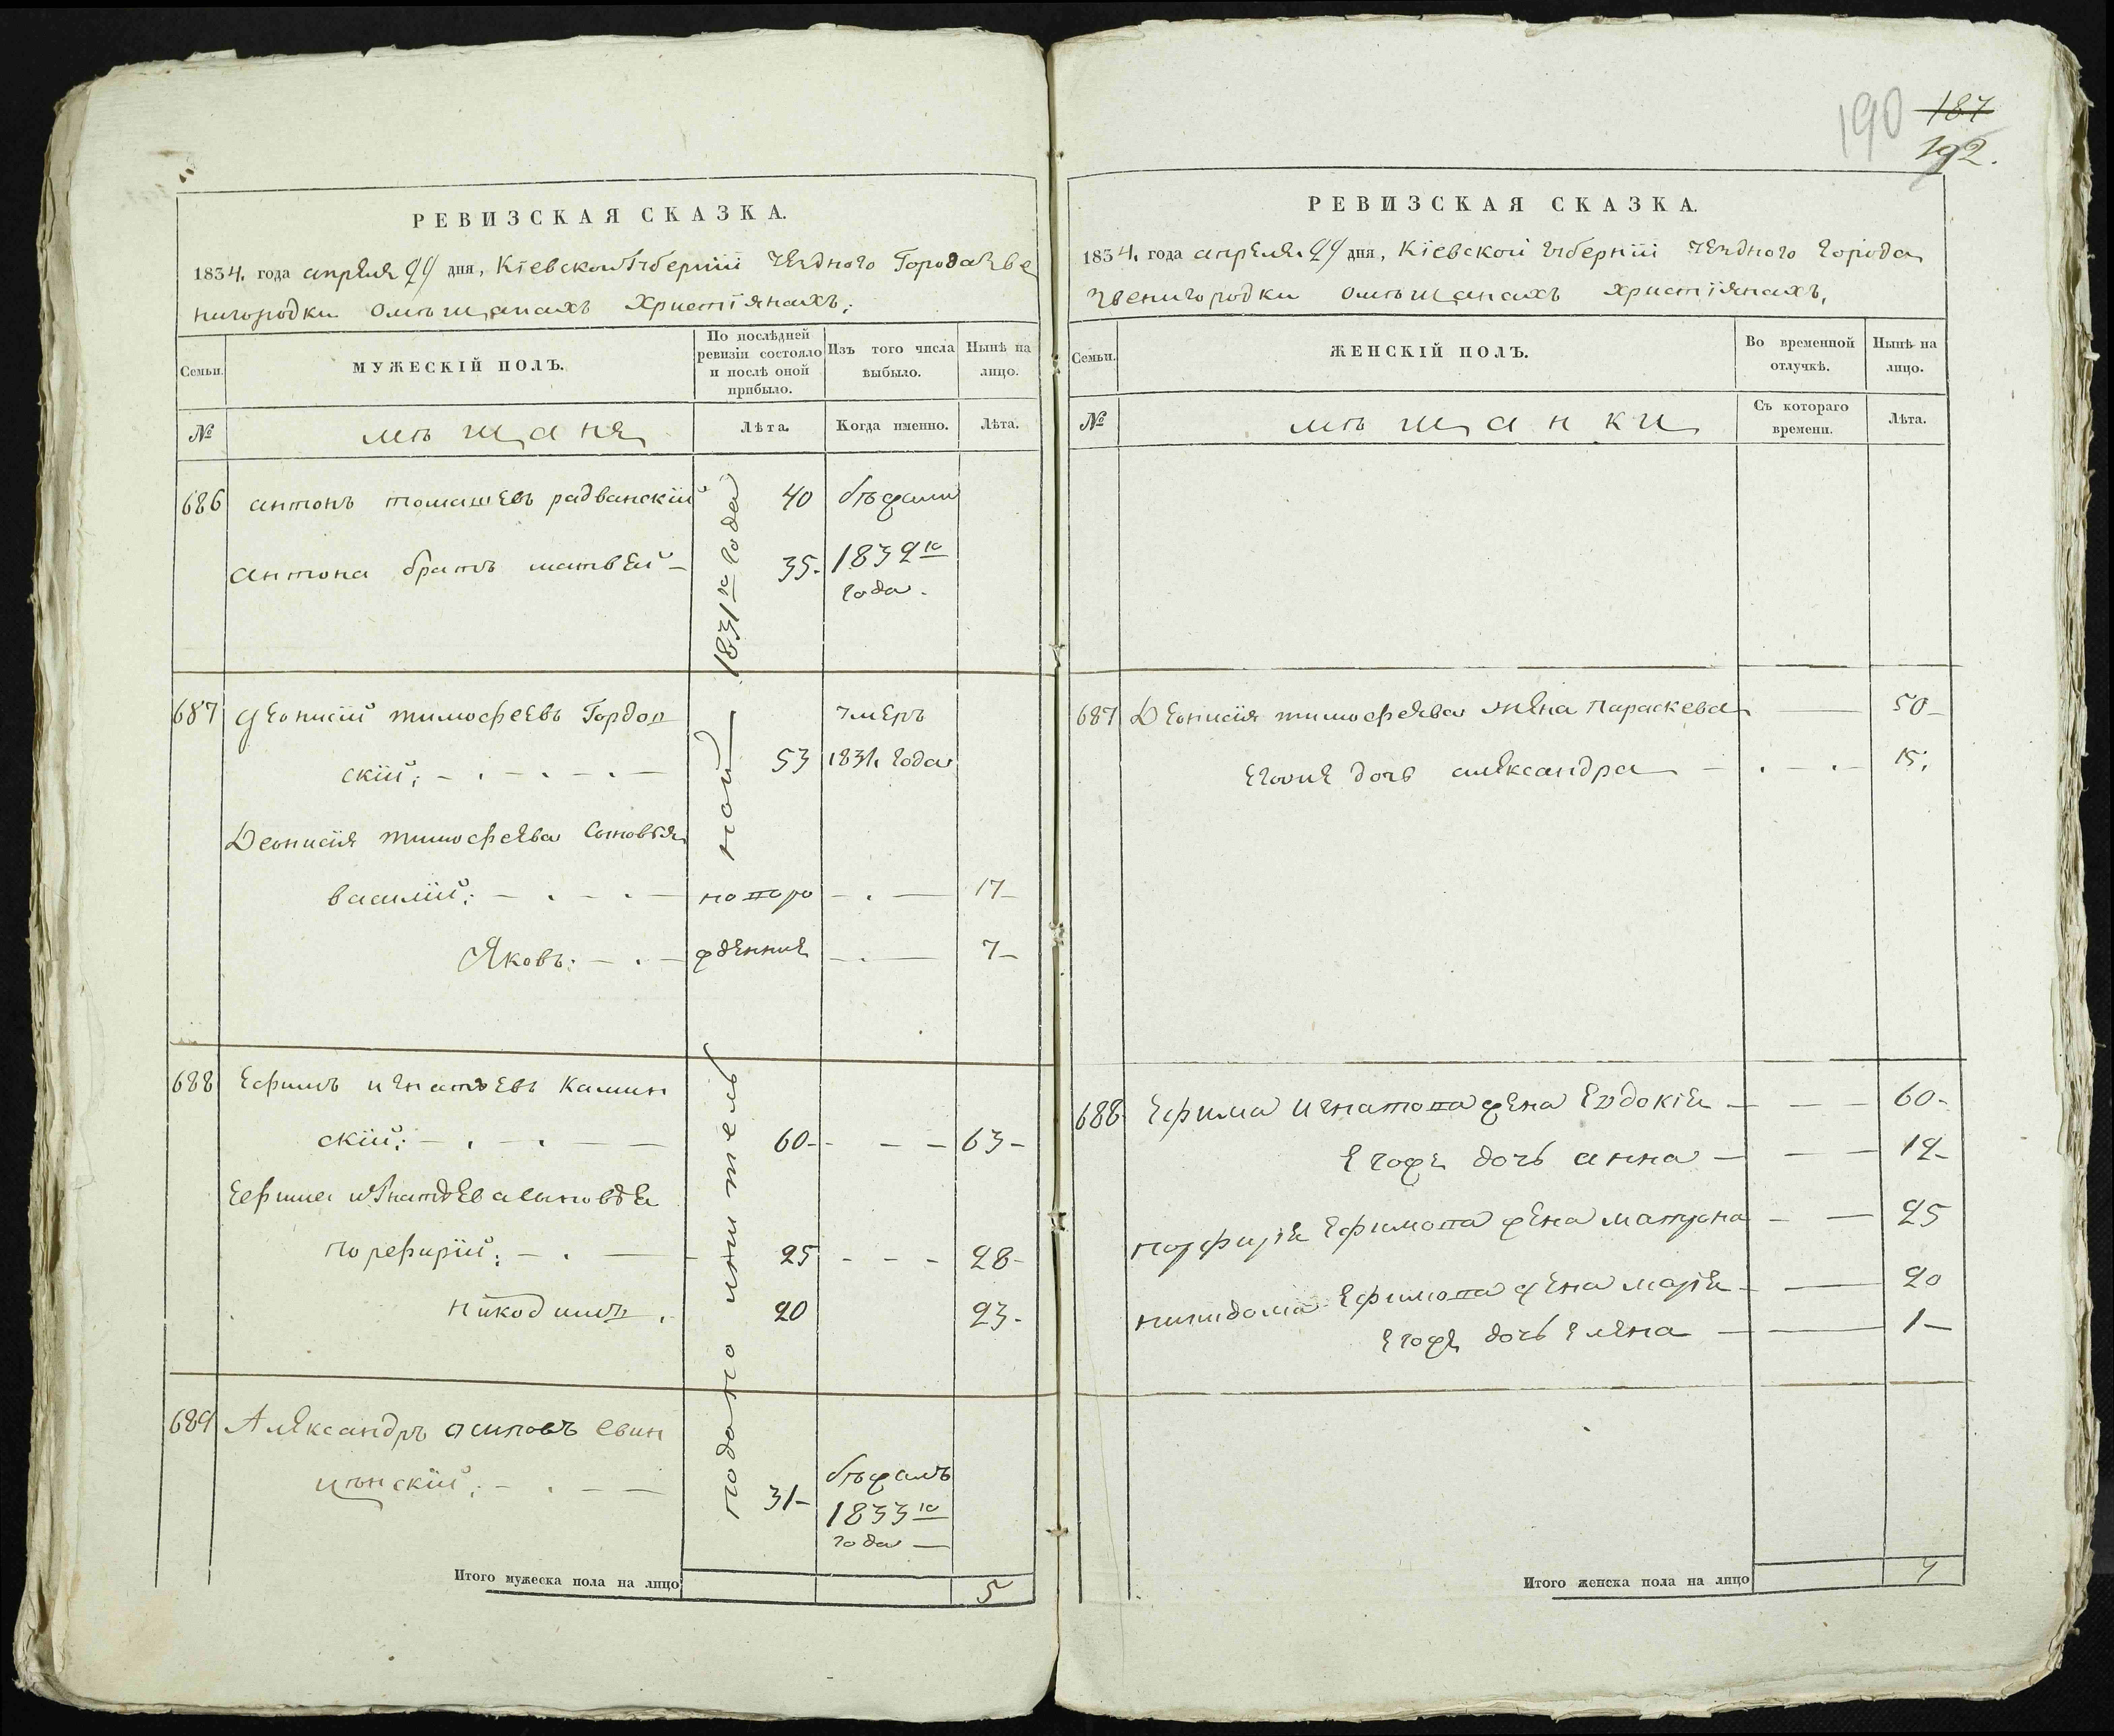 РЕВИЗСКАЯ СКАЗКА.
1834. года апреля 24 дня, Кіевской Губерніи уезднаго Города Зве
нигородки омѣщанахъ Христіянахъ;
Семьи.
МУЖЕСКІЙ ПОЛЪ.
По послѣдней ревизіи состояло и послѣ оной прибыло.
Изъ того числа выбыло.
Нынѣ на лицо.
№
мѣщане
Лѣта.
Когда именно.
Лѣта.
подано мнитель ной 1831го года
686 антонъ томашевъ радванскій 40 бѣжали
антона братъ матвей 35. 1832го
года.
687 Деонисій тимофеевъ Гордов умеръ
скій; 53 1831. года
Деонисія тимофеева Сыновья
василій; новоро 17
Яковъ: жденние 7
688 Ефимъ игнатьевъ Камин
скій; 60 63
Ефима игнатьева сыновья
порфирій; 25 28
никодимъ. 20 23.
689 Александръ осиповъ свин
цѣнскій; 31 бѣжалъ
1833го
года
Итого мужеска пола на лицо 5
190 187
192.
РЕВИЗСКАЯ СКАЗКА.
1834. года апреля 24 дня, Кіевской губерніи уезднаго города
звенигородки омѣщанахъ христіянахъ,
Семьи.
ЖЕНСКІЙ ПОЛЪ.
Во временной отлучкѣ.
Нынѣ на лицо.
№
мѣщанки
Съ котораго времени.
Лѣта.
687 Деонисія тимофеева жена параскева 50
его дочь александра 15;
688 Ефима игнатова жена Евдокія 60
Егоже дочь анна 12
порфирія Ефимова жена матрона 25
Ефимова жена марія 20
Егоже дочь Елена 1
Итого женска пола на лицо 7